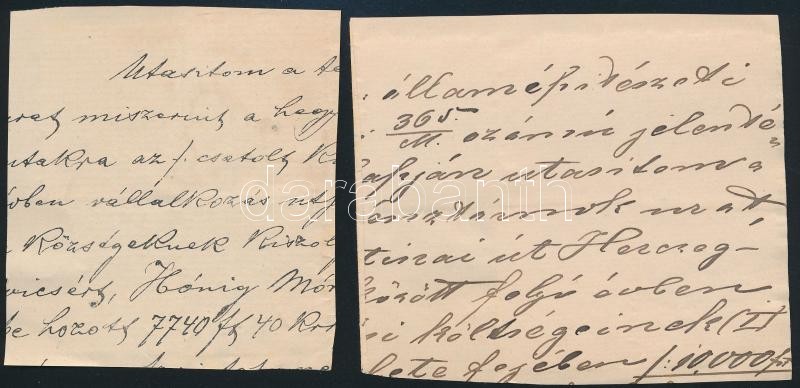 Utasitom a te
urat miszerint a hegy
utakra az /. csatolt ki
évben vállalkozás utj
Községeknek kiszol
vicsért, Hónig Mór
be hozott 7740 ft 40 kr
államépitészeti
365/M. számú jelenté=
alapján utasitom a
pénztárnok urat,
tinai út Herczeg-
között folyó évben
si költségeinek (I)
lete fejében /: 10,000 frt
darabanth